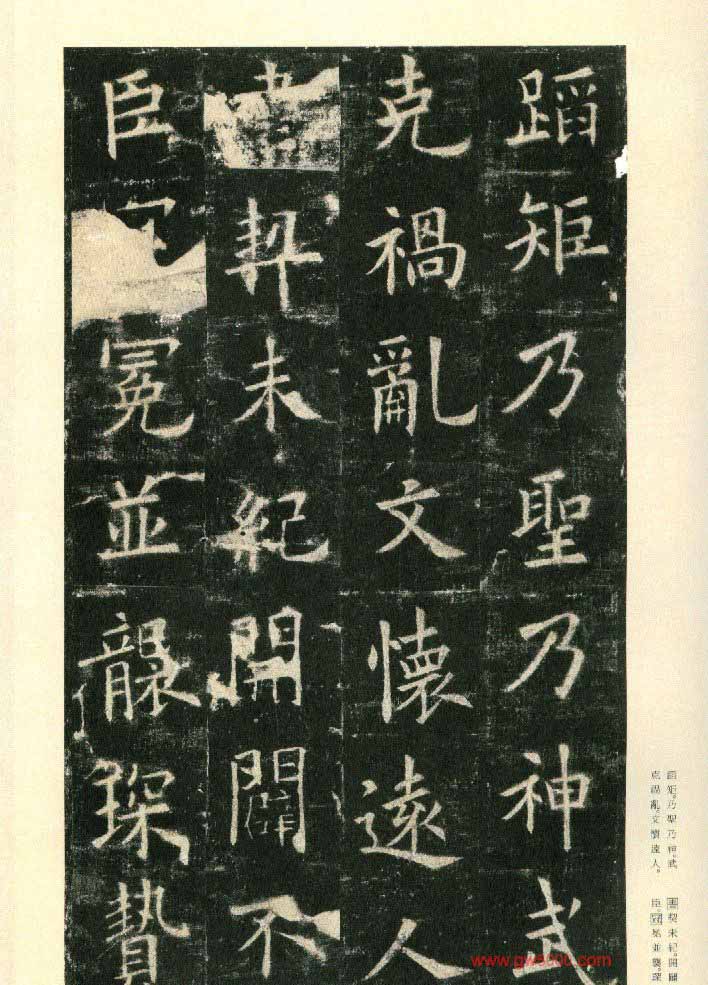 蹈矩乃聖乃神武
克禍亂文懷遠人
書契未紀開闢不
臣冠冕並襲琛贄
蹈矩。乃聖乃神。武
克禍亂。文懷遠人。
書契未紀。開闢
臣。冠冕並襲。琛